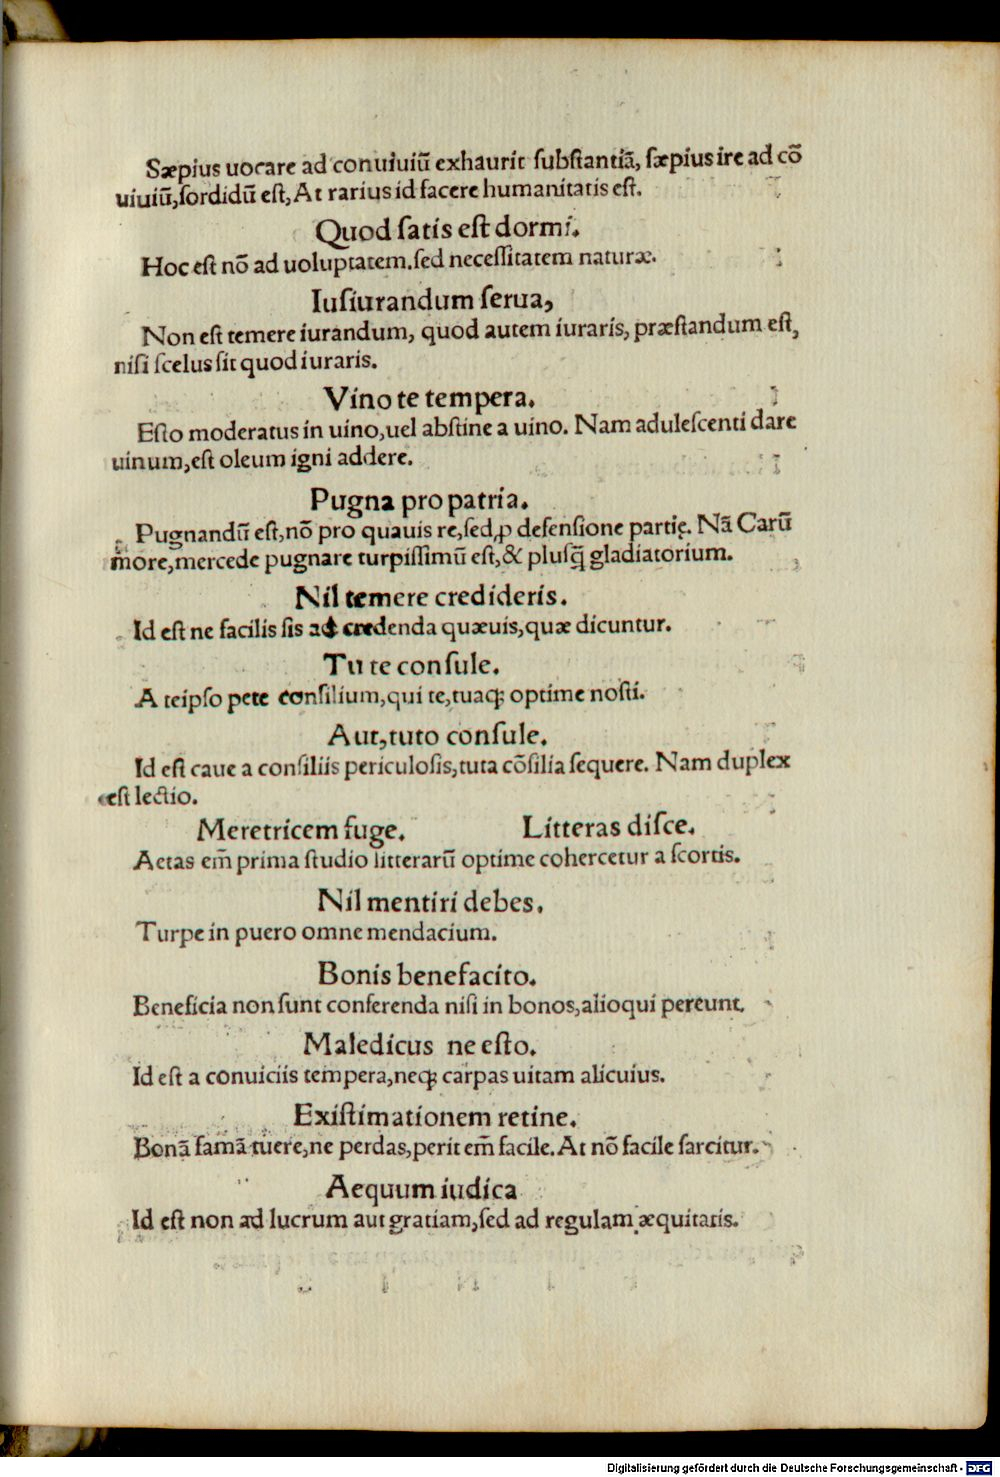 Sæpius uocare ad conuiuiū exhaurit ſubſtantiā, ſæpius ire ad cō
uiuiū, ſordidū eſt, At rarius id facere humanitatis eſt.
Quod ſatis eſt dormi.
Hoc eſt nō ad uoluptatem. ſed neceſſitatem naturæ.
Iuſiurandum ſerua,
Non eſt temere iurandum, quod autem iuraris, præſtandum eſt,
niſi ſcelus ſit quod iuraris.
Vino te tempera.
Eſto moderatus in uino, uel abſtine a uino. Nam aduleſcenti dare
uinum, eſt oleum igni addere.
Pugna pro patria.
Pugnandū eſt, nō pro quauis re, ſed ꝓ defenſione partię. Nā Carū
more, mercede pugnare turpiſſimū eſt, & pluſq̄ gladiatorium.
Nil temere credideris.
Id eſt ne facilis ſis ad credenda quæuis, quæ dicuntur.
Tu te conſule.
A teipſo pete conſilium, qui te, tuaqꝫ optime noſti.
Aut, tuto conſule.
Id eſt caue a conſiliis periculoſis, tuta cōſilia ſequere. Nam duplex
eſt lectio.
Meretricem fuge. Litteras diſce.
Aetas em̄ prima ſtudio litterarū optime cohercetur a ſcortis.
Nil mentiri debes.
Turpe in puero omne mendacium.
Bonis benefacito.
Beneficia non ſunt conferenda niſi in bonos, alioqui pereunt.
Maledicus ne eſto.
Id eſt a conuiciis tempera, neqꝫ carpas uitam alicuius.
Exiſtimationem retine.
Bonā famā tuere, ne perdas, perit em̄ facile. At nō facile ſarcitur.
Aequum iudica
Id eſt non ad lucrum aut gratiam, ſed ad regulam æquitatis.
Digitalisierung gefördert durch die Deutsche Forschungsgemeinschaft - DFG